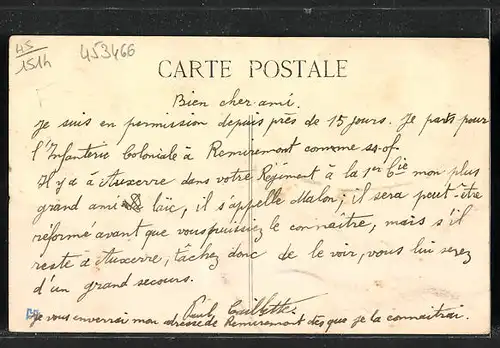 45
1514
453466
CARTE POSTALE
Bien cher ami.
Je suis en permission depuis près de 15 jours. Je pars pour
l'Infanterie Coloniale à Remiremont comme ss-of.
Il y a à Auxerre dans votre Régiment à la 1er Cie mon plus
grand ami laïc, il s'appelle Malon; il sera peut-être
réformé avant que vous puissiez le connaître, mais s'il
reste à Auxerre, tâchez donc de le voir, vous lui serez
d'un grand secours.
Paul
Je vous enverrai mon adresse de Remiremont dès que je la connaitrai.